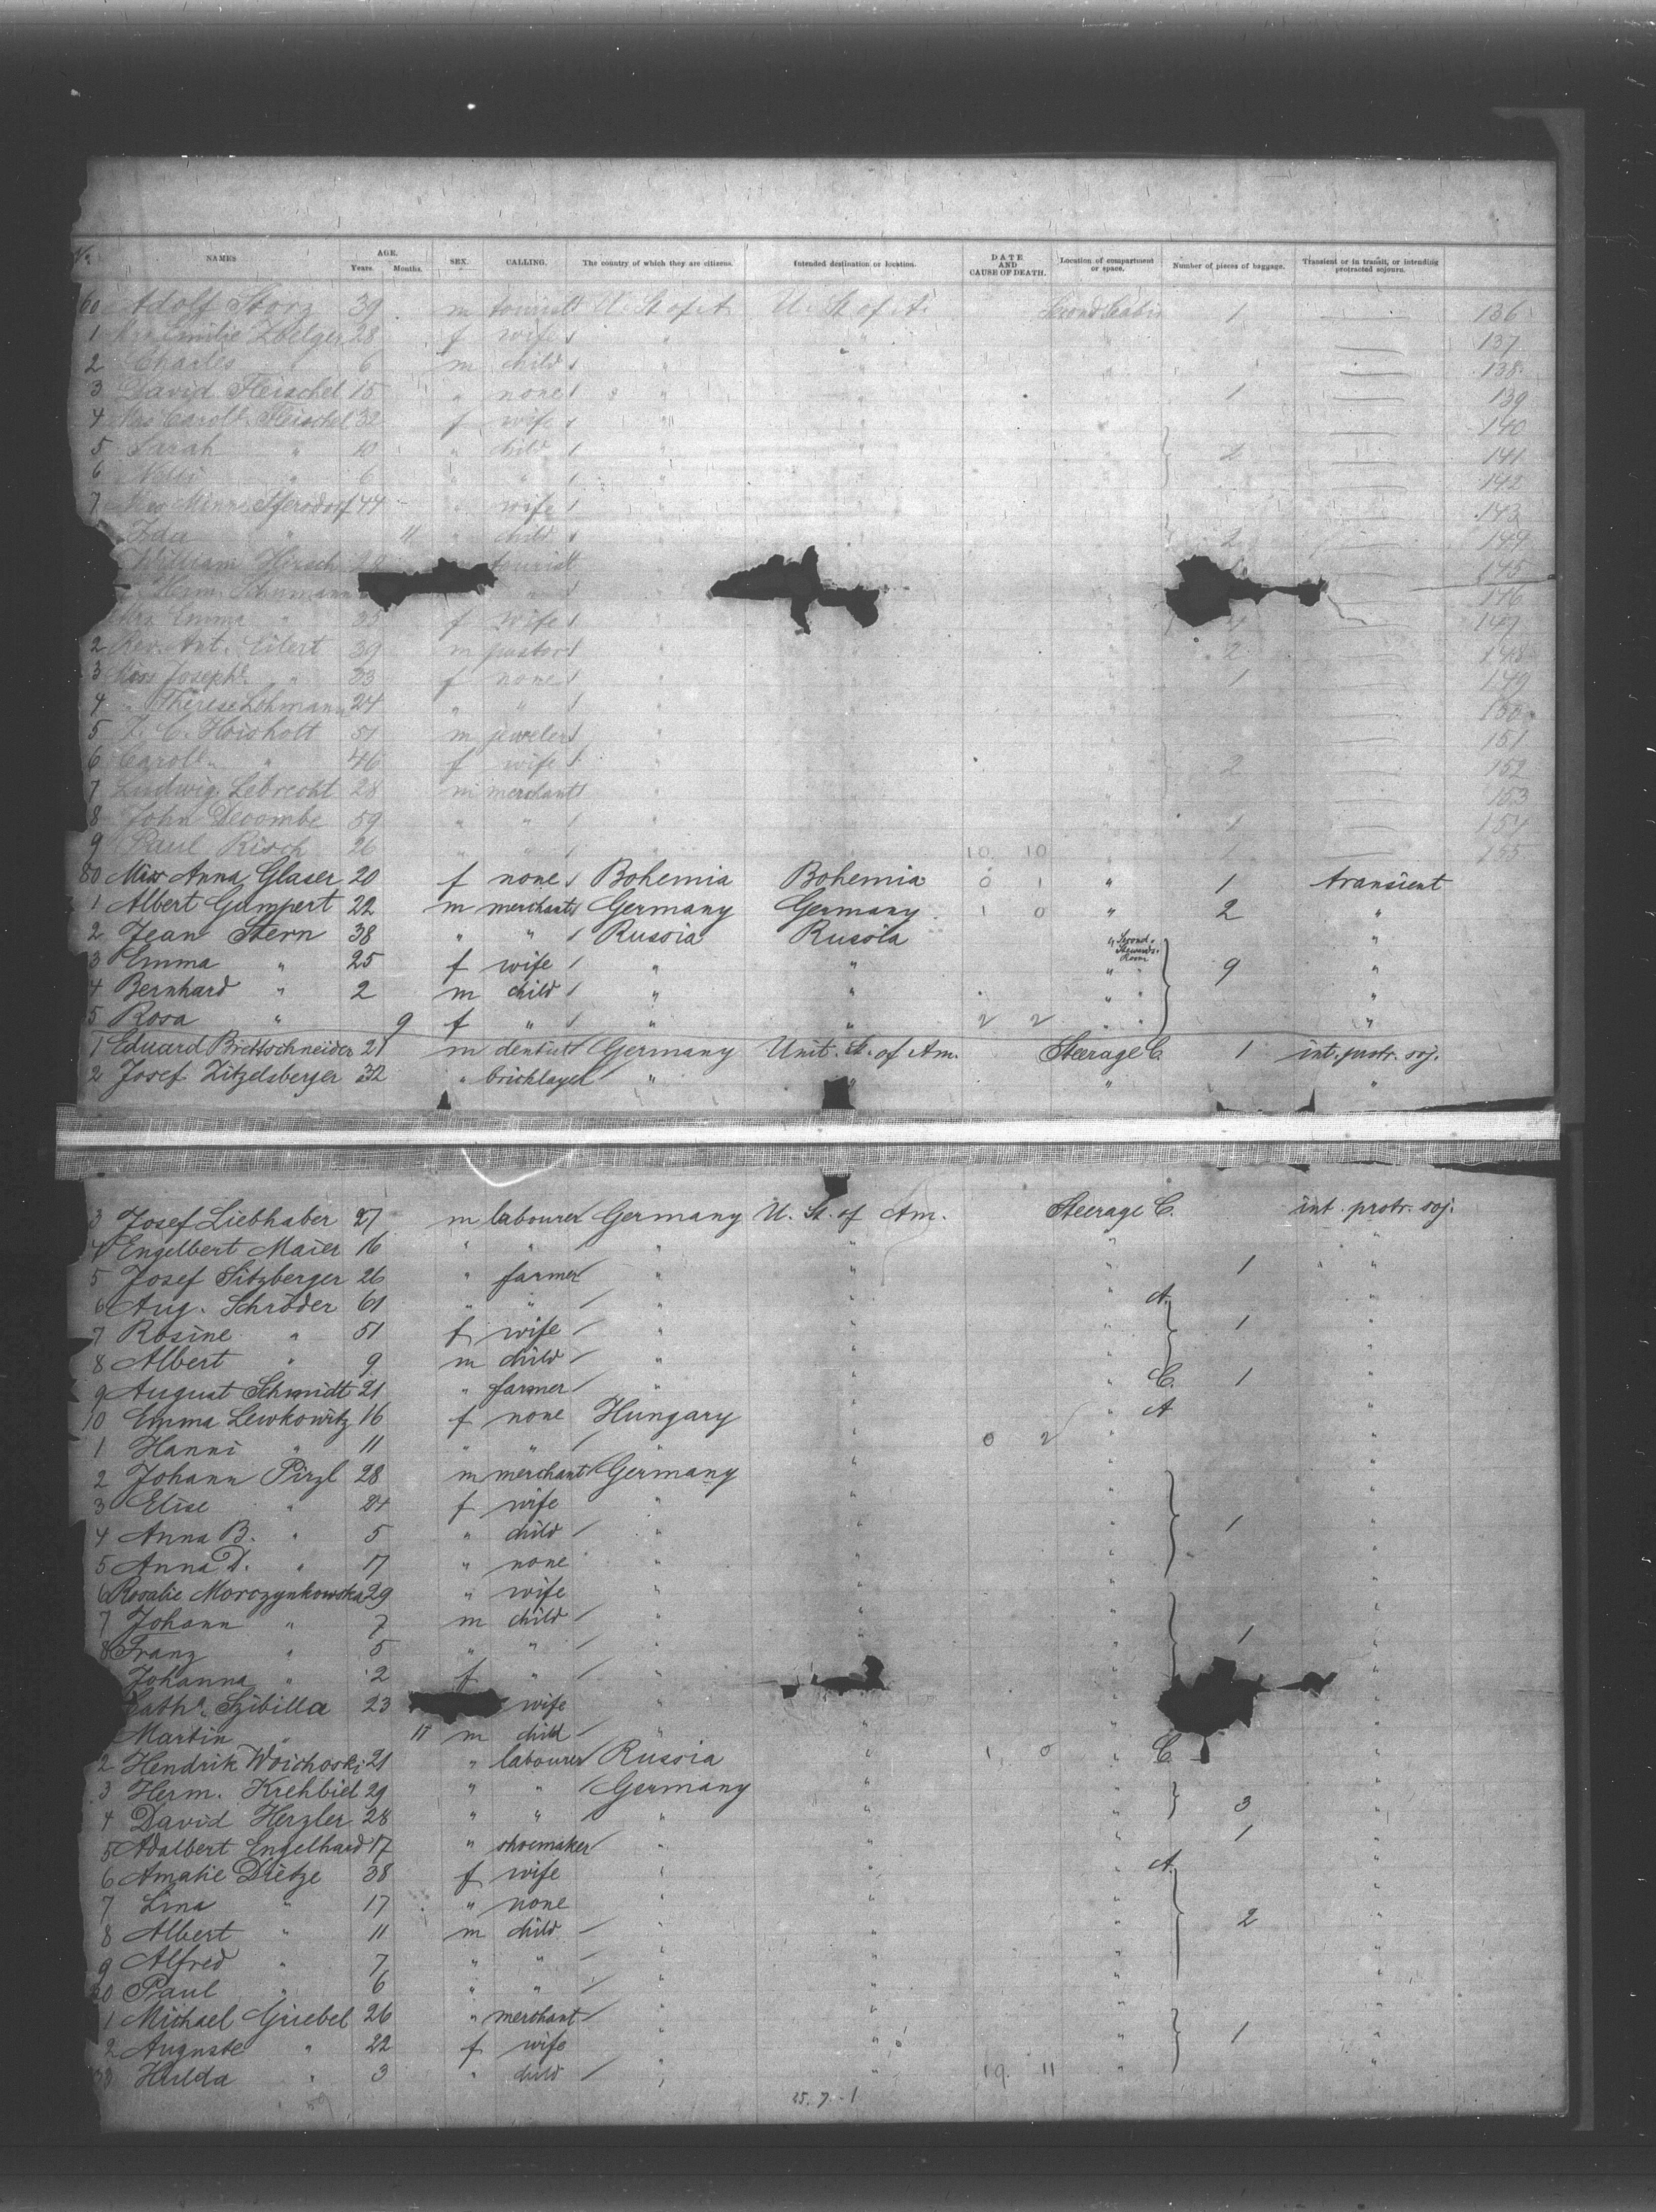 No. NAMES AGE. Years. Months. SEX. CALLING. The country of which they are citizens. Intended destination or location. DATE AND CAUSE OF DEATH. Location of compartment or space. Number of pieces of baggage. Transient or in transit, or intending protracted sojourn.
60 Adolf Storz 39 m tourist U. St. of A. U. St. of A. Second Cabin 1 — 136
1 Mrs Emilie Zoelger 28 f wife " " — 137
2 Charles " 6 m child " " — 138
3 David Fleischel 15 " none " " 1 — 139
4 Mrs Carol. Fleischel 32 f wife " — 140
5 Sarah " 10 " child 2 — 141
6 Nelli " 6 " " — 142
7 Mrs Minna 44 " wife — 143
Ida " 11 " child " 2 — 144
William Hirsch 29 tourist — 145
Herm. Schumann " 146
Mrs Emma " 35 f wife 147
2 Rev. Ant. Eilert 39 m pastor " 2 — 148
3 Miss Joseph. " 33 f none " 1 — 149
4 " Therese Lohmann 24 " " — 150
5 51 m jeweler " — 151
6 Carol. " 46 f wife 2 — 152
7 Ludwig Lebrecht 28 m merchant " — 153
8 John Decombe 59 " " " 1 — 154
9 Paul Risch 26 " " 10 10 " 1 — 155
80 Miss Anna Glaser 20 f none Bohemia Bohemia 0 1 " 1 transient
1 Albert Gumpert 22 m merchant Germany Germany 1 0 " 2 "
2 Jean Stern 38 " " Russia Russia " Second Stewards Room "
3 Emma " 25 f wife " " " " 9 "
4 Bernhard " 2 m child " " " " "
5 Rosa " 9 f " " " 2 2 " " "
1 Eduard Brettschneider 21 m dentist Germany Unit. St. of Am. Steerage C. 1 int. protr. soj.
2 Josef Zitzelsberger 32 " bricklayer " " " "
3 Josef Liebhaber 27 m labourer Germany U. St. of Am. Steerage C. int. protr. soj.
4 Engelbert Maier 16 " " " " " "
5 Josef Sitzberger 26 " farmer " " " 1 "
6 Aug. Schröder 61 " " " " " A. "
7 Rosine " 51 f wife " " " 1 "
8 Albert " 9 m child " " " "
9 August Schmidt 21 " farmer " " " C. 1 "
10 Emma Lewkowitz 16 f none Hungary " " A "
1 Hanni " 11 " " " " 0 2 " "
2 Johann Pirzl 28 m merchant Germany " " "
3 Elise " 24 f wife " " " "
4 Anna B. " 5 " child " " " 1 "
5 Anna D. " 17 " none " " " "
6 Rosalie Morczynkowska 29 " wife " " " "
7 Johann " 7 m child " " " "
8 Franz " 5 " " " " " 1 "
Johanna " 2 f " " " "
Cath. Szibilla 23 wife " " " "
Martin " 11 m child " " " "
2 Hendrik Woichoski 21 " labourer Russia " 1 0 " C. "
3 Herm. Krehbiel 29 " " Germany " " "
4 David Herzler 28 " " " " " 3 "
5 Adalbert Engelhard 17 " shoemaker " " " 1 "
6 Amalie Dietze 38 f wife " " " A. "
7 Lina " 17 " none " " " "
8 Albert " 11 m child " " " 2 "
9 Alfred " 7 " " " " " "
20 Paul " 6 " " " " " "
1 Michael Giebel 26 " merchant " " " "
2 Auguste " 22 f wife " " " 1 "
33 Hulda " 3 " child " " 19 11 " "
25. 7. - 1